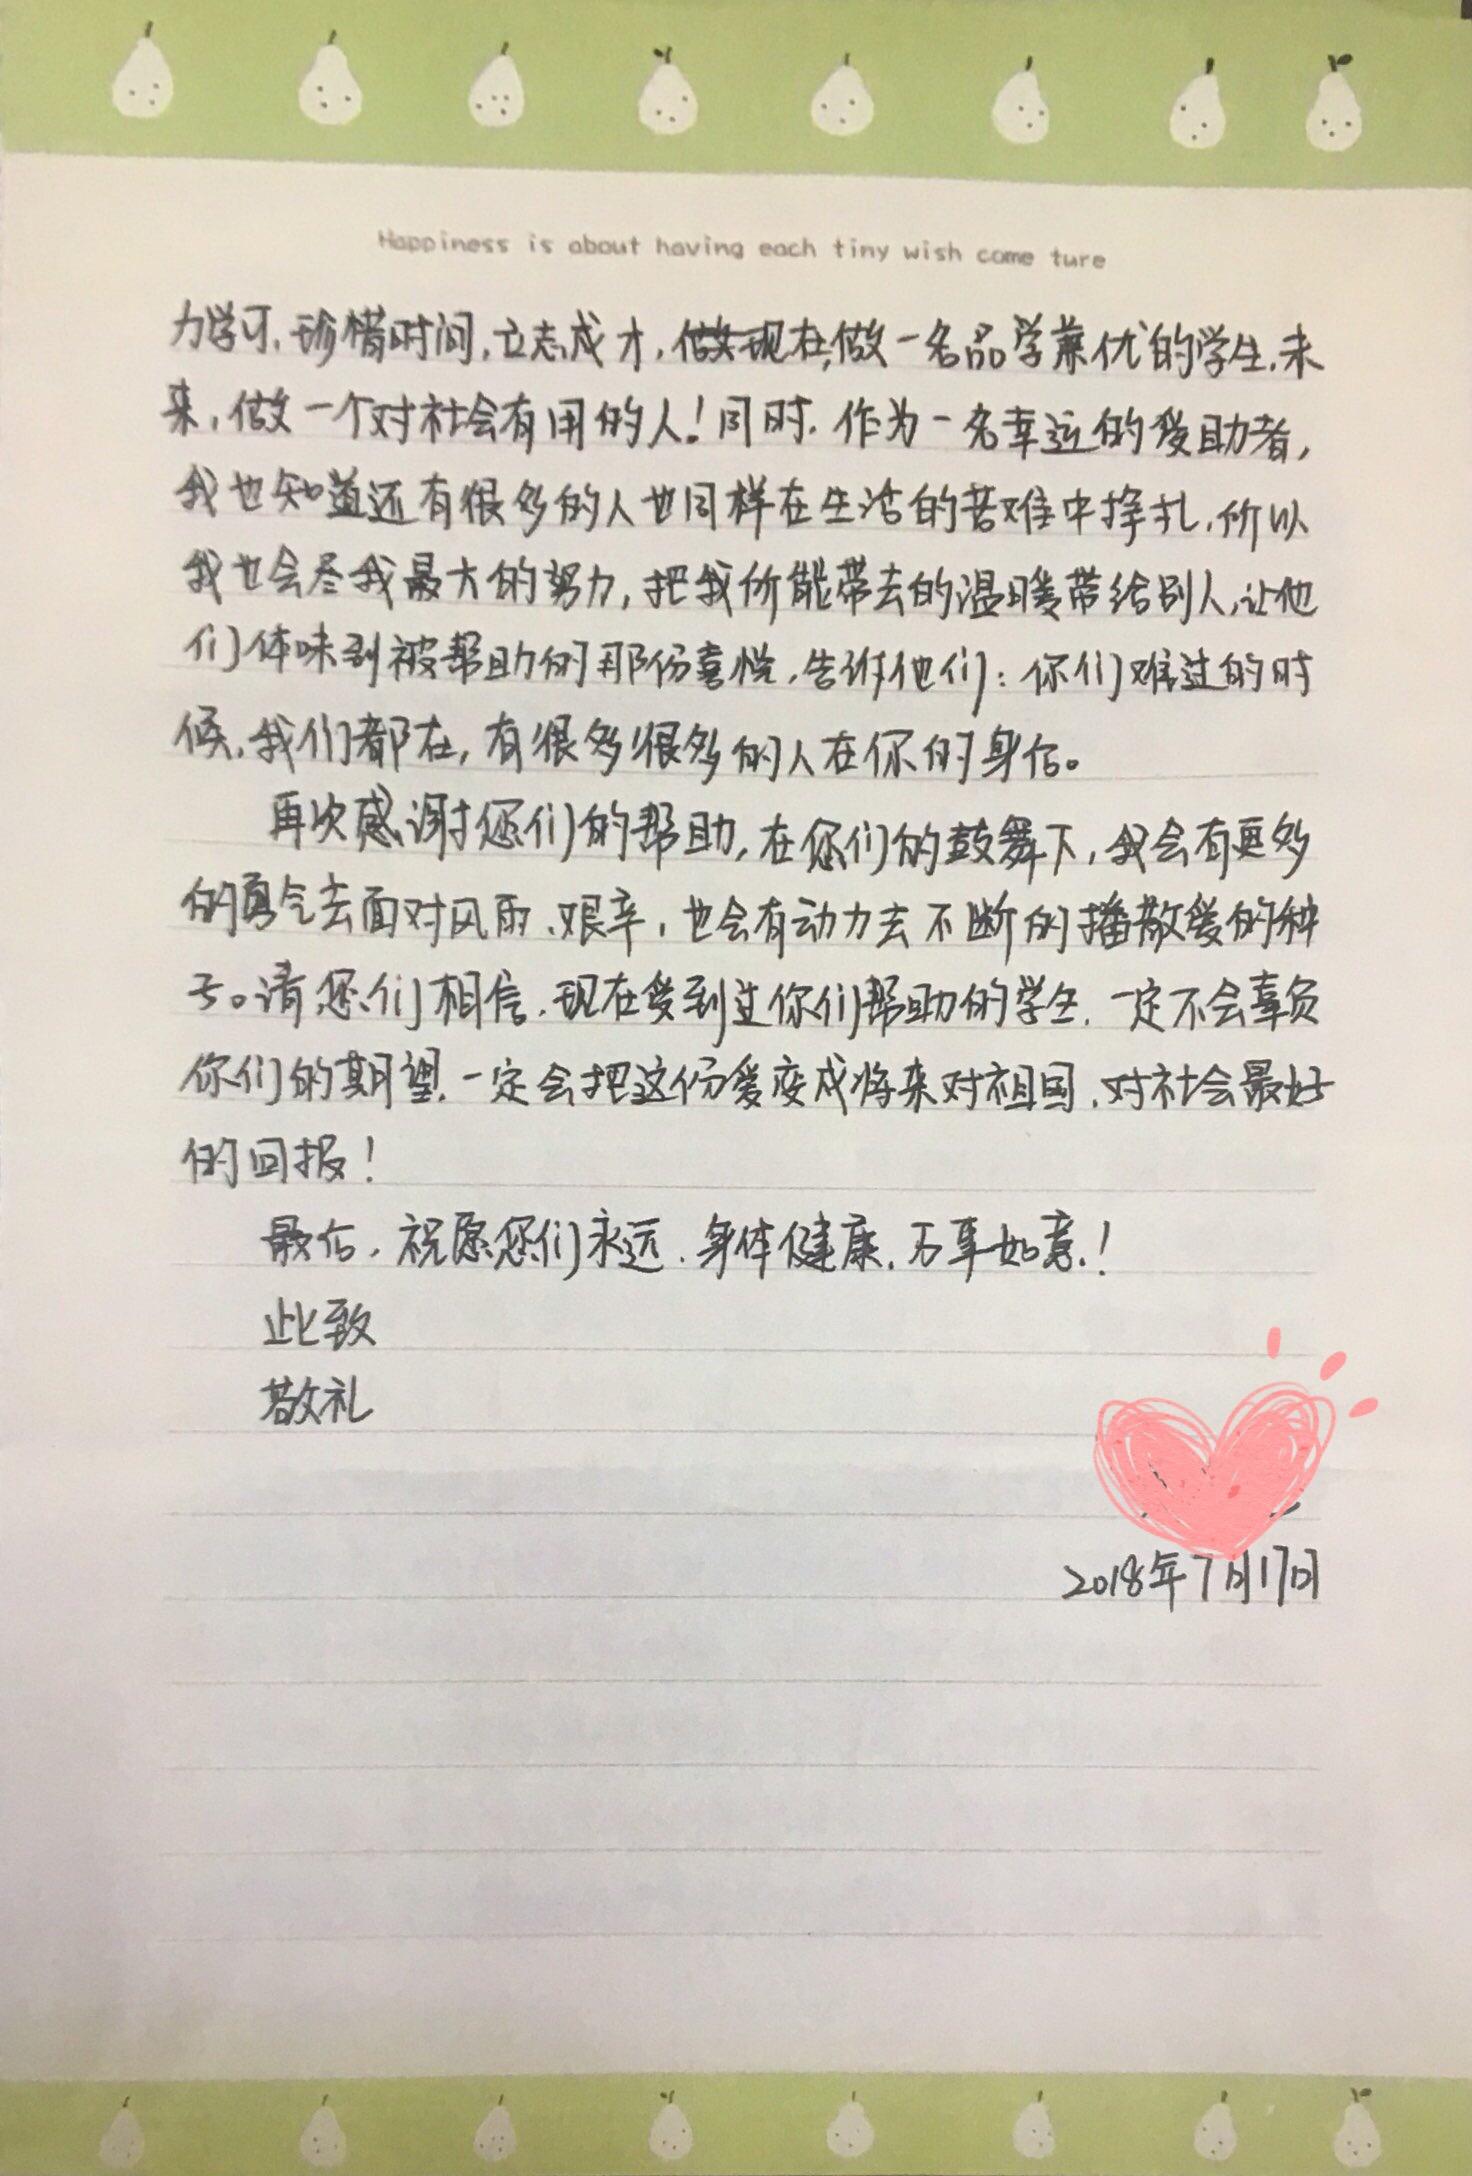 Happiness is about having each tiny wish come ture
力学习，珍惜时间，立志成才，做好现在，做一名品学兼优的学生，未
来，做一个对社会有用的人！同时，作为一名幸运的受助者，
我也知道还有很多的人也同样在生活的苦难中挣扎，所以
我也会尽我最大的努力，把我所能带去的温暖带给别人，让他
们体味到被帮助的那份喜悦，告诉他们：你们难过的时
候，我们都在，有很多很多的人在你的身后。
再次感谢您们的帮助，在您们的鼓舞下，我会有更多
的勇气去面对风雨、艰辛，也会有动力去不断的播散爱的种
子。请您们相信，现在受到过你们帮助的学生，一定不会辜负
你们的期望，一定会把这份爱变成将来对祖国，对社会最好
的回报！
最后，祝愿您们永远，身体健康，万事如意！
此致
敬礼
2018年7月17日